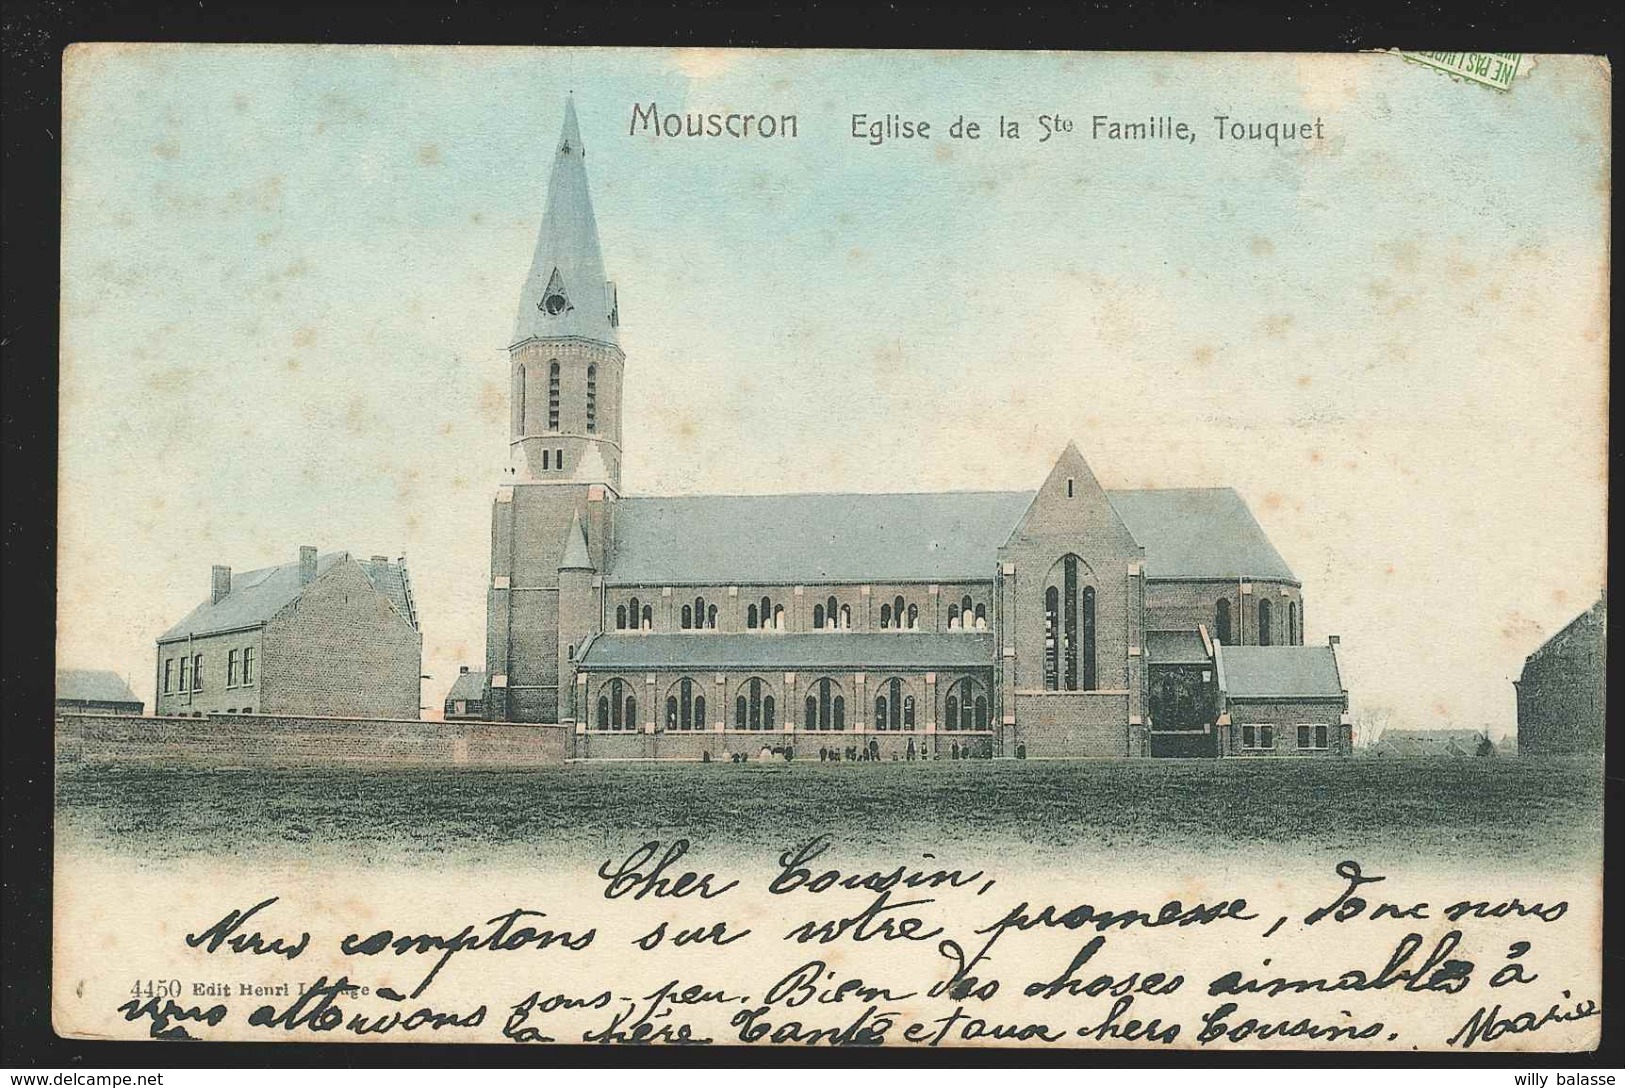 NE PAS LIVRER
Mouscron Eglise de la Ste Famille, Touquet
Cher Cousin,
Nous comptons sur votre promesse, donc nous
4450 Edit Henri
vous attendons sous-peu. Bien des choses aimables à
la chère Tante et aux chers Cousins. Marie
willy balasse